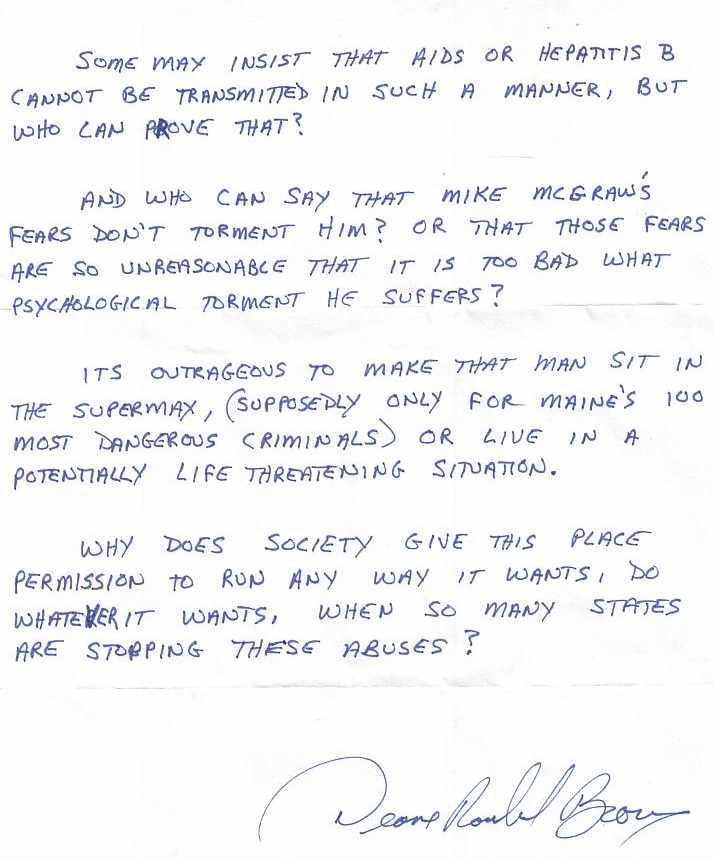 SOME MAY INSIST THAT AIDS OR HEPATITIS B
CANNOT BE TRANSMITTED IN SUCH A MANNER, BUT
WHO CAN PROVE THAT?
AND WHO CAN SAY THAT MIKE MCGRAW'S
FEARS DON'T TORMENT HIM? OR THAT THOSE FEARS
ARE SO UNREASONABLE THAT IT IS TOO BAD WHAT
PSYCHOLOGICAL TORMENT HE SUFFERS?
ITS OUTRAGEOUS TO MAKE THAT MAN SIT IN
THE SUPERMAX, (SUPPOSEDLY ONLY FOR MAINE'S 100
MOST DANGEROUS CRIMINALS) OR LIVE IN A
POTENTIALLY LIFE THREATENING SITUATION.
WHY DOES SOCIETY GIVE THIS PLACE
PERMISSION TO RUN ANY WAY IT WANTS, DO
WHATEVER IT WANTS, WHEN SO MANY STATES
ARE STOPPING THESE ABUSES?
Deane Brown